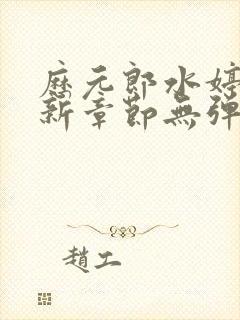 歷元郎水婷
新章節無彈
趙工